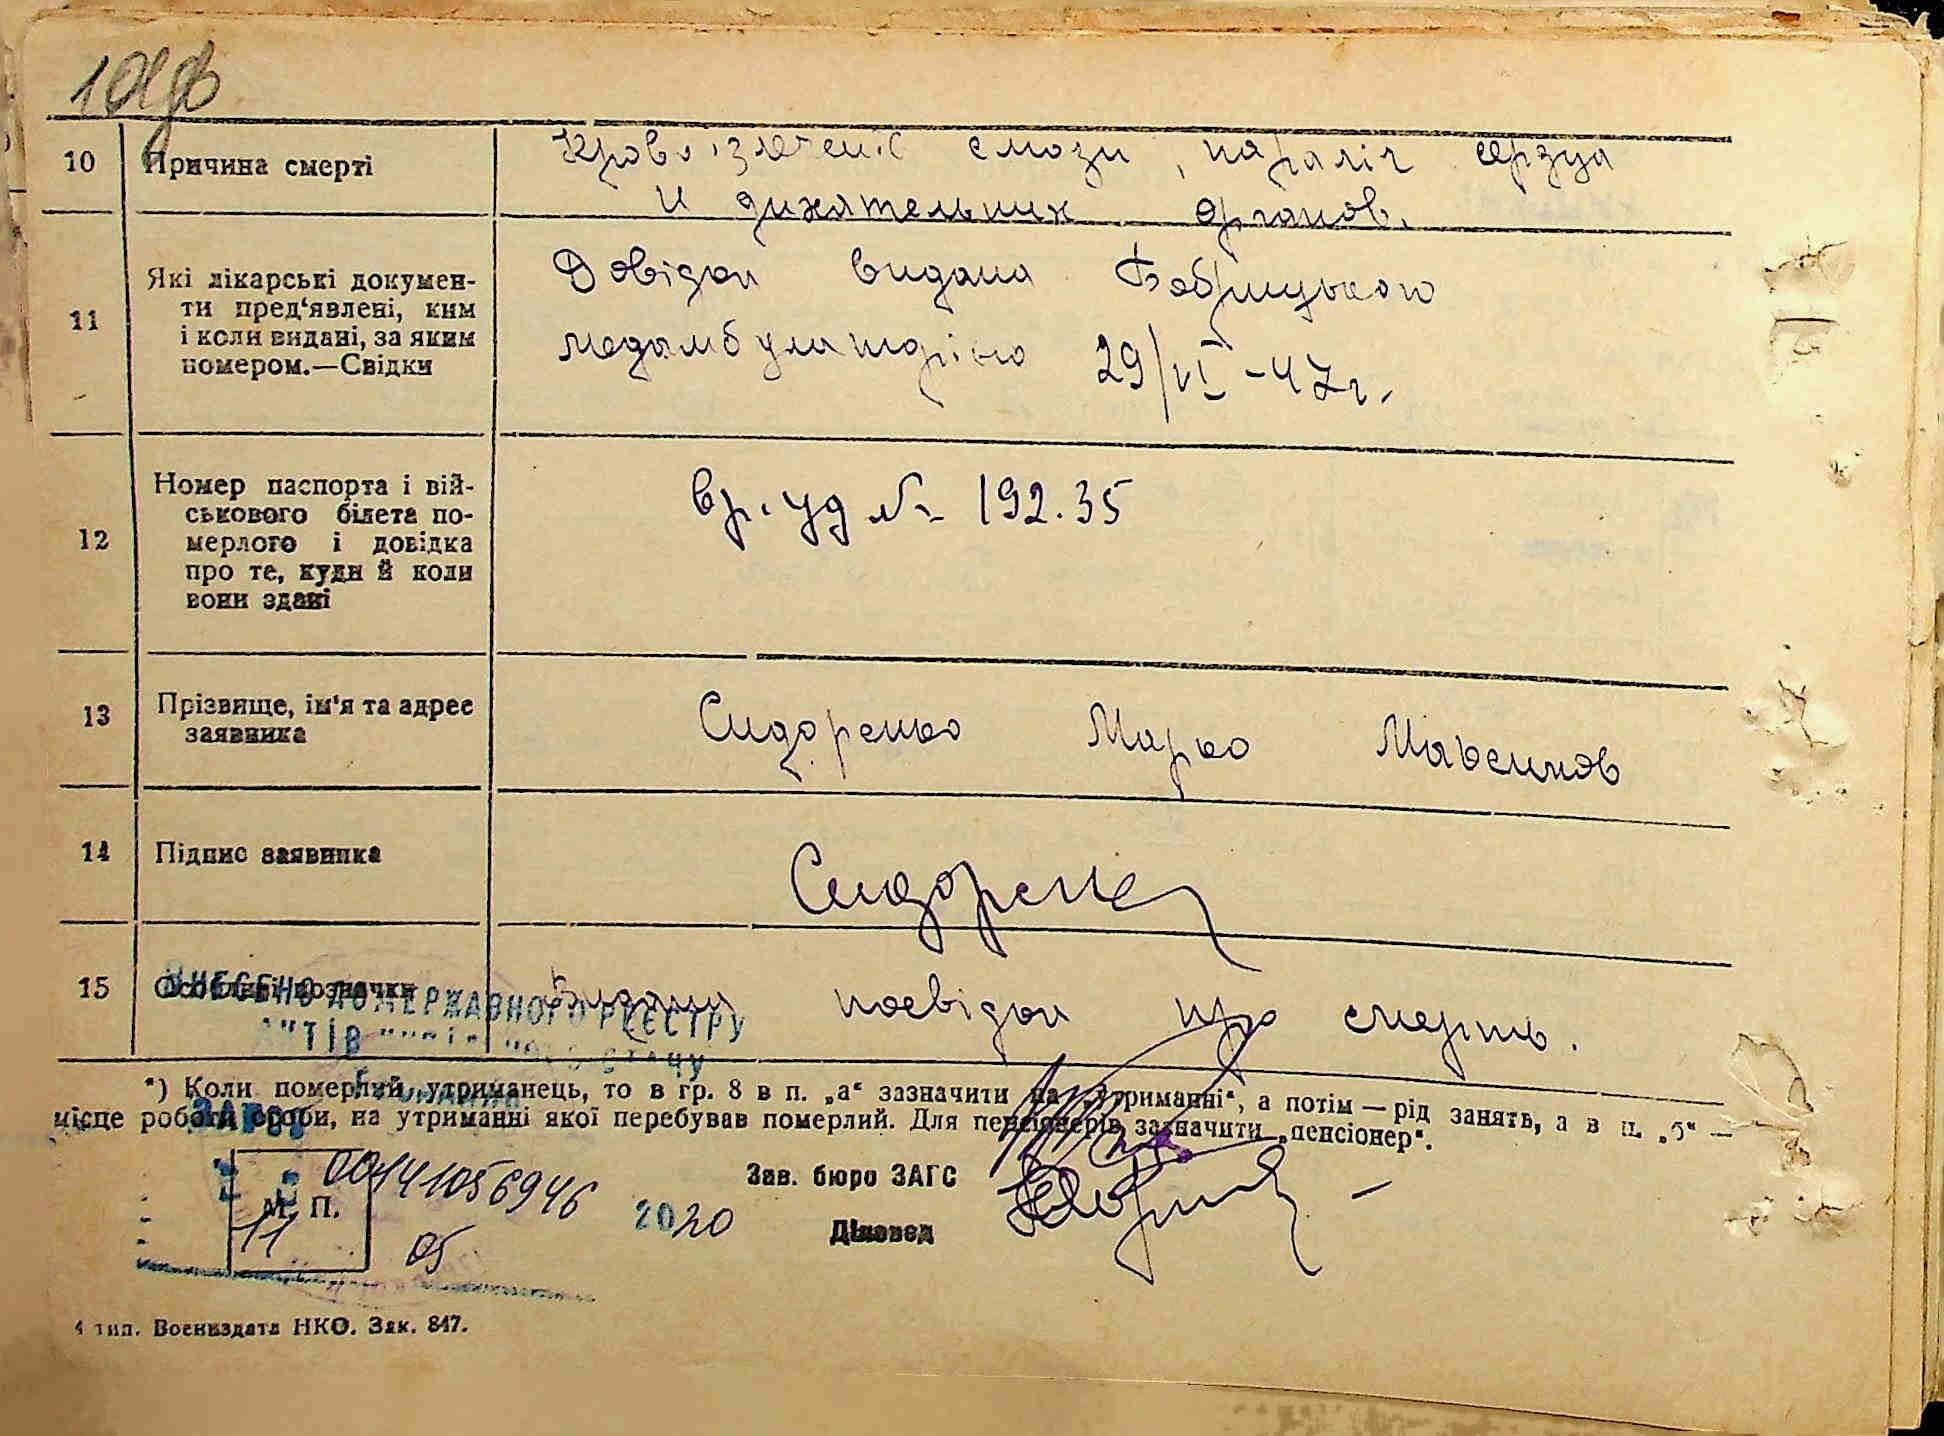 10
Причина смерті
Кровоізлеченіє смози, параліч сердца
и дихятельних органов.
11
Які лікарські докумен-
ти пред‘явлені, ким
і коли видані, за яким
номером.—Свідки
Довідка видана Бобрицькою
медамбулаторією 29/VI-47г.
12
Номер паспорта і вій-
ськового білета по-
мерлого і довідка
про те, куди й коли
вони здані
вр. уд № 192.35
13
Прізвище, ім‘я та адрес
заявника
Сидоренко Марко Максимов
14
Підпис заявника
Сидоренко
15
Особливі позначки
Видана посвідка про смерть.
ВНЕСЕНО ДО ДЕРЖАВНОГО РЕЄСТРУ
АКТІВ
*) Коли померлий утриманець, то в гр. 8 в п. „а“ зазначити на „утриманні“, а потім — рід занять, а в п. „б“ —
місце роботи особи, на утриманні якої перебував померлий. Для пенсіонерів зазначити „пенсіонер“.
00141056946
М. П.
11 05 2020
Зав. бюро ЗАГС
Діловод
4 тип. Воениздата НКО. Зак. 847.